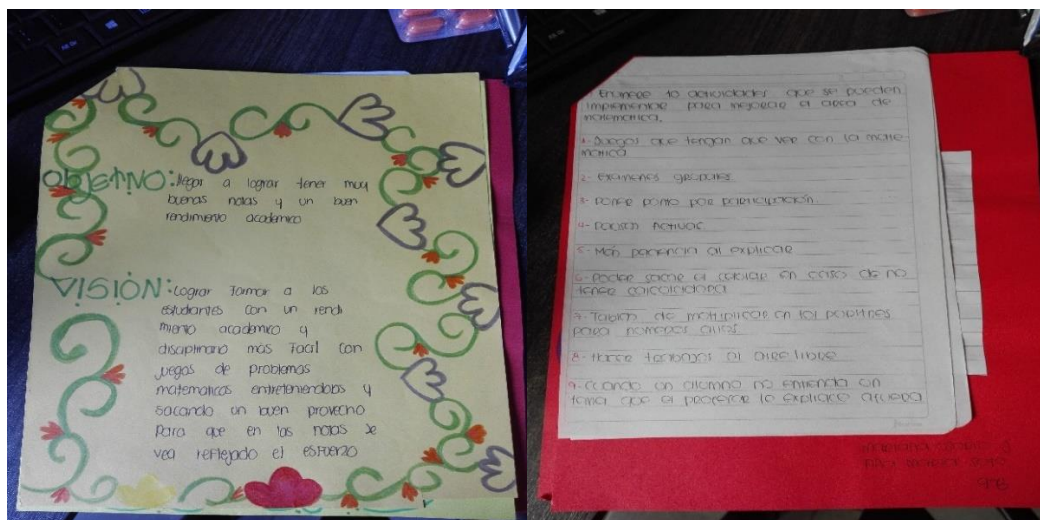 OBJETIVO: llegar a lograr tener muy
buenas notas y un buen
rendimiento academico
VISIÓN: Lograr formar a los
estudiantes con un rendi
miento academico y
disciplinario más facil con
juegos de problemas
matematicos entreteniendolos y
sacando un buen provecho
Para que en las notas se
vea reflejado el esfuerzo
Enumere 10 actividades que se pueden
implementar para mejorar el area de
matematica.
1- Juegos que tengan que ver con la mate-
matica
2- Examenes grupales
3- Poner punto por participación.
4- Pausas Activas.
5- Más paciencia al explicar
6- Poder sacar el celular en caso de no
tener calculadora
7- Tablas de multiplicar en los pupitres
para numeros altos
8- Hacer trabajos al aire libre
9- Cuando un alumno no entienda un
tema que el profesor le explique afuera
Mariana
Maria